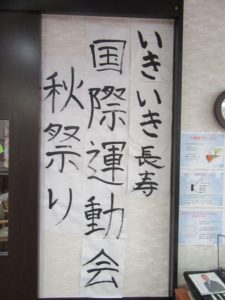 いきいき長寿
国際運動会
秋祭り